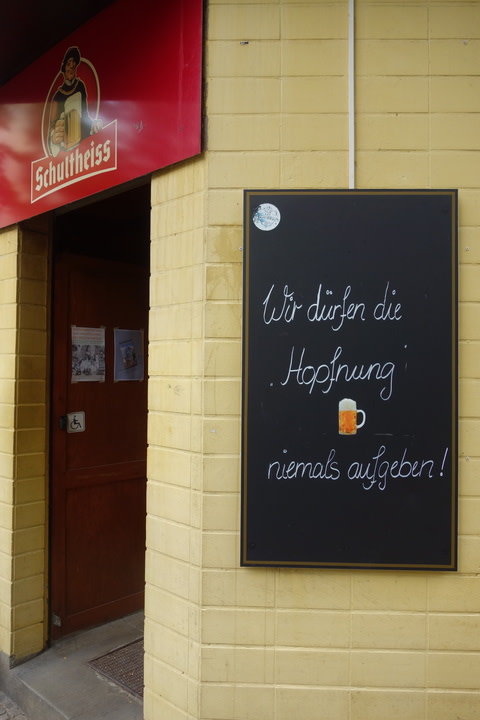 Schultheiss
Wir dürfen die
„Hopfnung"
niemals aufgeben!